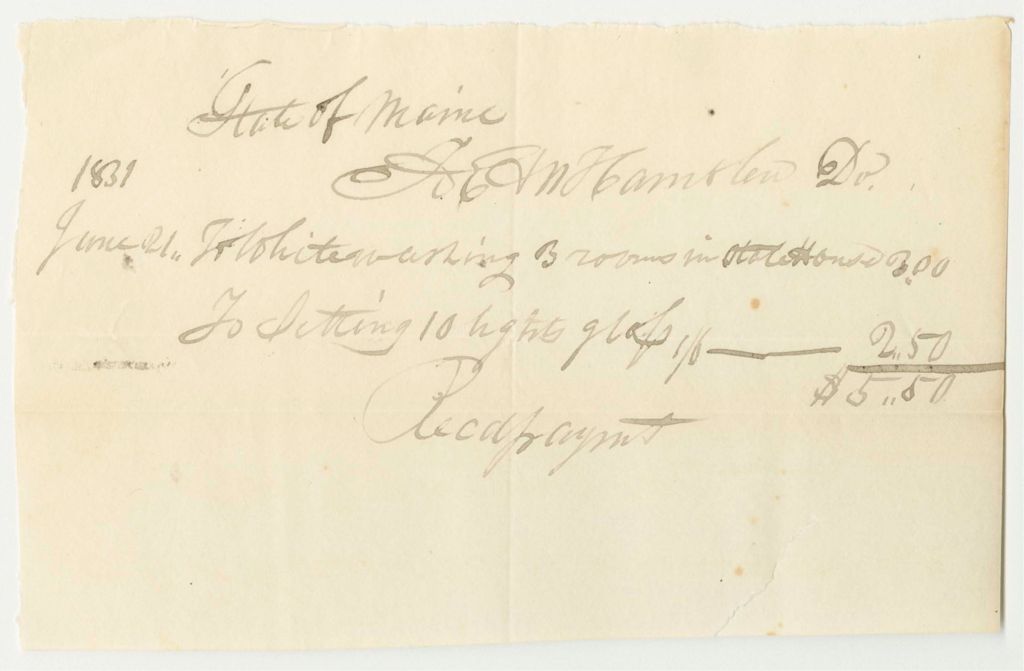 State of Maine
1831 To E & M Hamblen Dr.
June 21,, To Whitewashing 3 rooms in State House 3,,00
To Setting 10 lights glass, 1/6 2,,50
$5,,50
Recd paymt